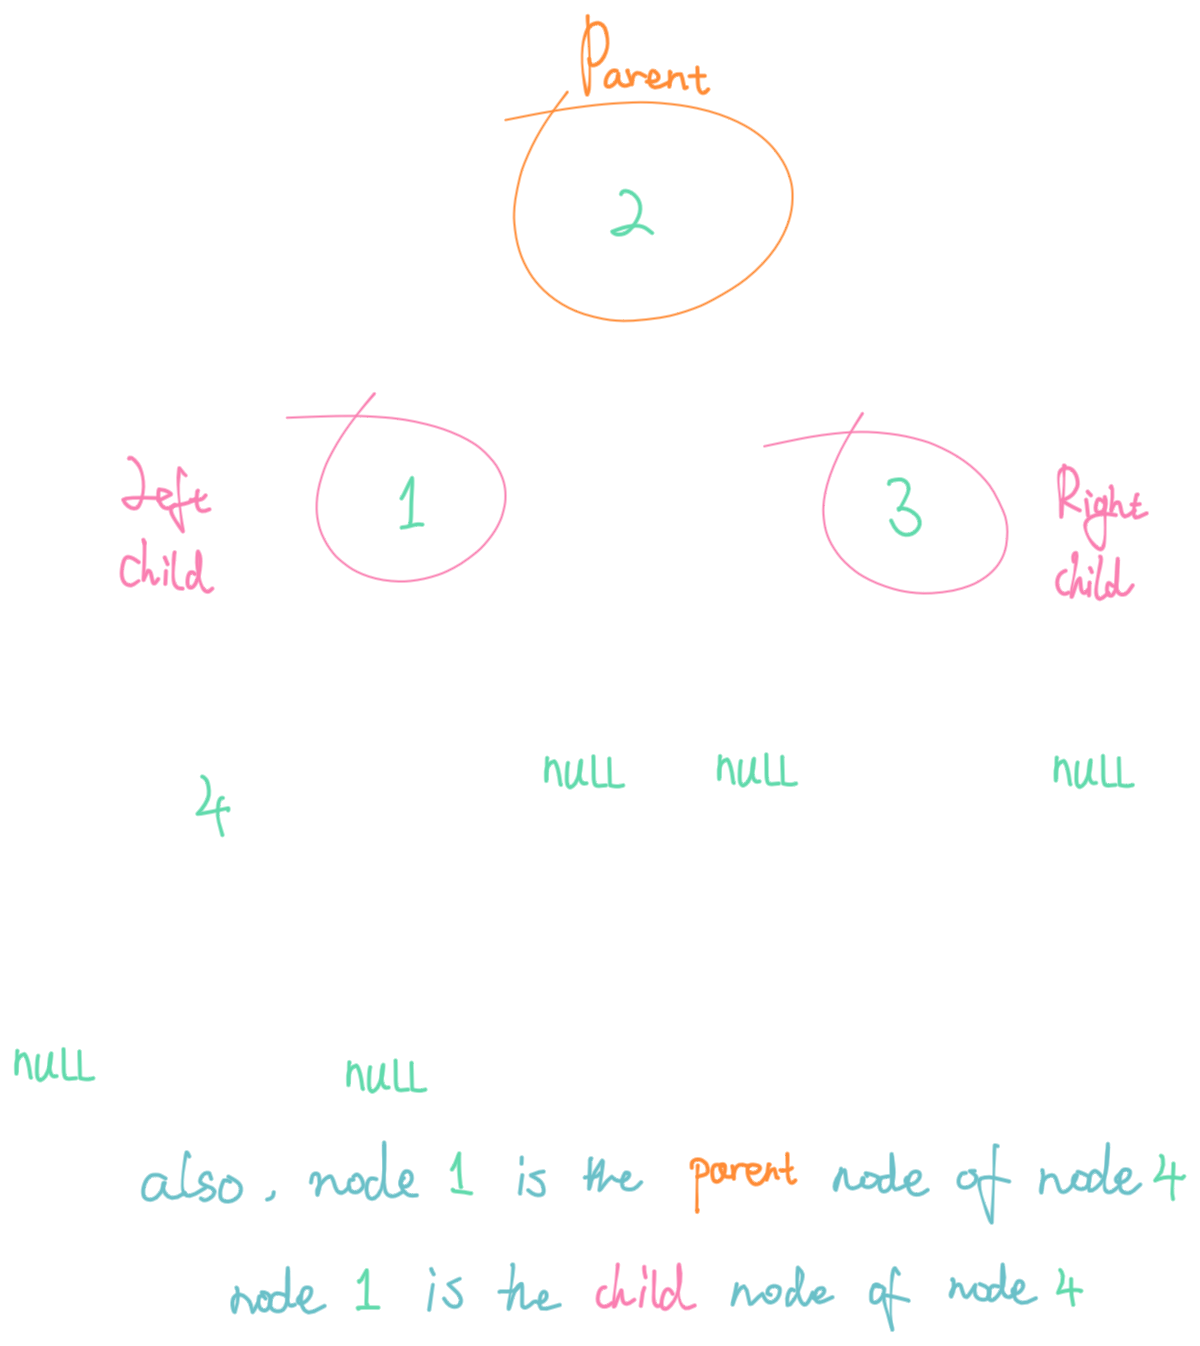 Parent
2
Left
child
1
3
Right
child
4
null
null
null
null
null
also, node 1 is the parent node of node 4
node 1 is the child node of node 4